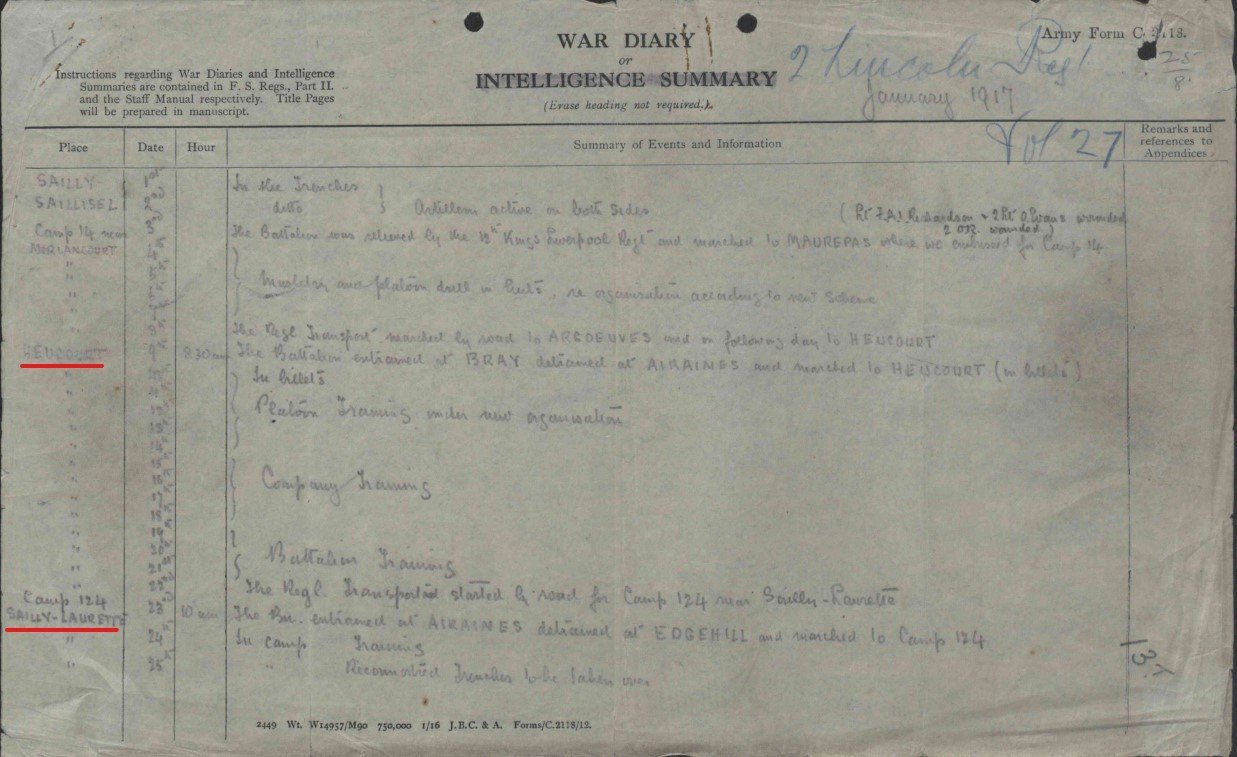 WAR DIARY
or
INTELLIGENCE SUMMARY
(Erase heading not required.)
Army Form C. 2118.
Instructions regarding War Diaries and Intelligence
Summaries are contained in F. S. Regs., Part II.
and the Staff Manual respectively. Title Pages
will be prepared in manuscript.
2 Lincoln Regt
January 1917
25
8
Vol 27
Place Date Hour Summary of Events and Information Remarks and references to Appendices
SAILLY- 1st In the Trenches
SAILLISEL 2nd ditto Artillery active on both sides (Lt F.A. Richardson & 2 Lt O. Evans wounded
2 O.R. wounded)
Camp 14 near 3rd The Battalion was relieved by the Kings Liverpool Regt and marched to MAUREPAS where we embussed for Camp 14
MORLANCOURT 4th
" 5th
" Musketry and platoon drill in huts, re organisation according to new scheme
" 8th The Regl Transport marched by road to ARGOEUVES and on following day to HEUCOURT
HEUCOURT 9th 8.30 am The Battalion entrained at BRAY detrained at AIRAINES and marched to HEUCOURT (in billets)
" In billets
" Platoon Training under new organisation
" 13th
" 14th
" 15th
" 16th Company Training
" 17th
" 18th
" 19th
" 20th
" 21st Battalion Training
" 22nd The Regl. Transport started by road for Camp 124 near Sailly-Laurette
Camp 124
SAILLY-LAURETTE 23rd 10 am The Bn. entrained at AIRAINES detrained at EDGEHILL and marched to Camp 124
" 24th In camp Training
" 25th " Reconnoitred Trenches to be taken over
2449 Wt. W14957/M90 750,000 1/16 J.B.C. & A. Forms/C.2118/12.